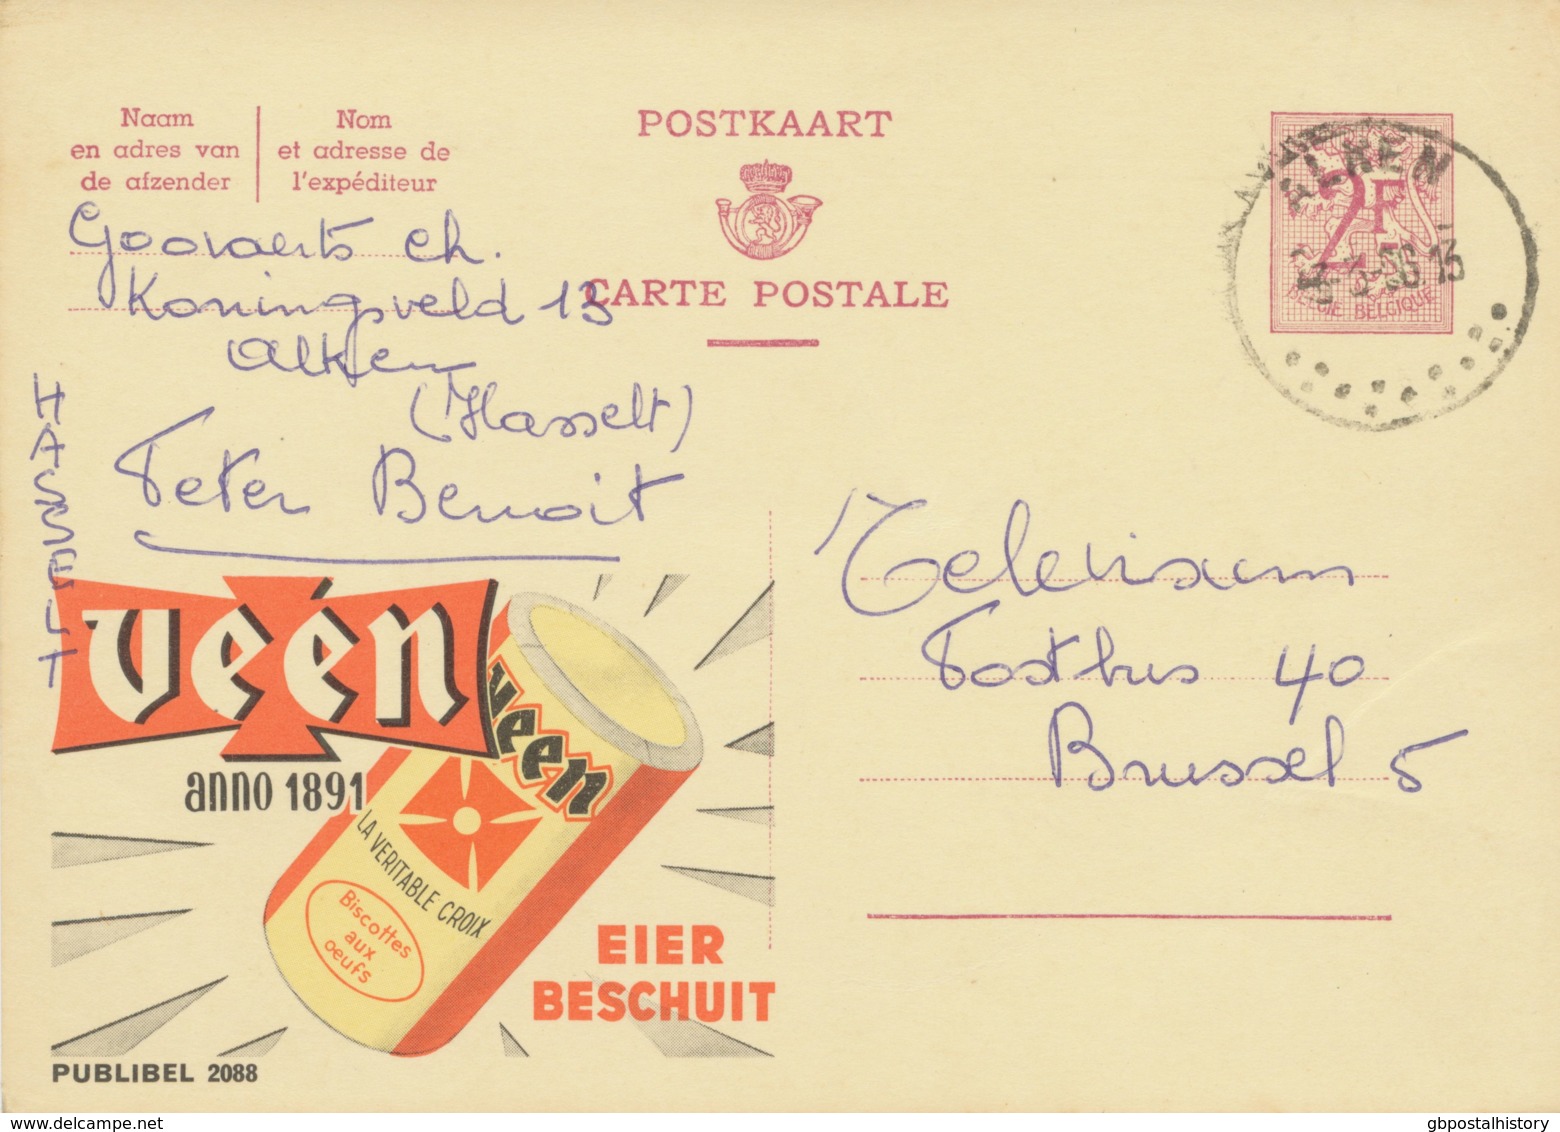 Naam
en adres van
de afzender
Nom
et adresse de
l'expéditeur
POSTKAART
CARTE POSTALE
ALKEN
2F
BELGIE BELGIQUE
Goovaerts Ch.
Koningsveld 13
Alken
(Hasselt)
Peter Benoit
HASSELT
Televisum
Postbus 40
Brussel 5
veén
anno 1891
veen
LA VERITABLE CROIX
Biscottes
aux
oeufs
EIER
BESCHUIT
PUBLIBEL 2088
gbpostalhistory